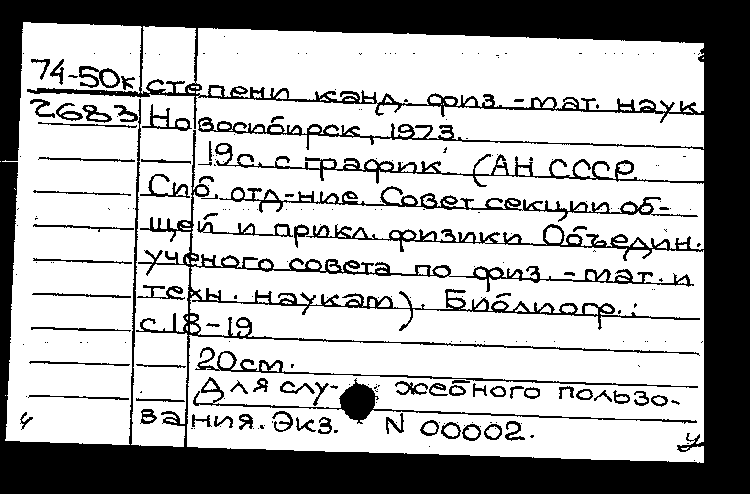 74-50к степени канд. физ.-мат. наук
2683 Новосибирск, 1973.
19с. с график (АН СССР
Сиб. отд-ние. Совет секции об-
щей и прикл. физики Объедин.
ученого совета по физ.-мат. и
техн. наукам). Библиогр.:
с.18-19
20см.
Для слу- жебного пользо-
вания. Экз. N 00002.